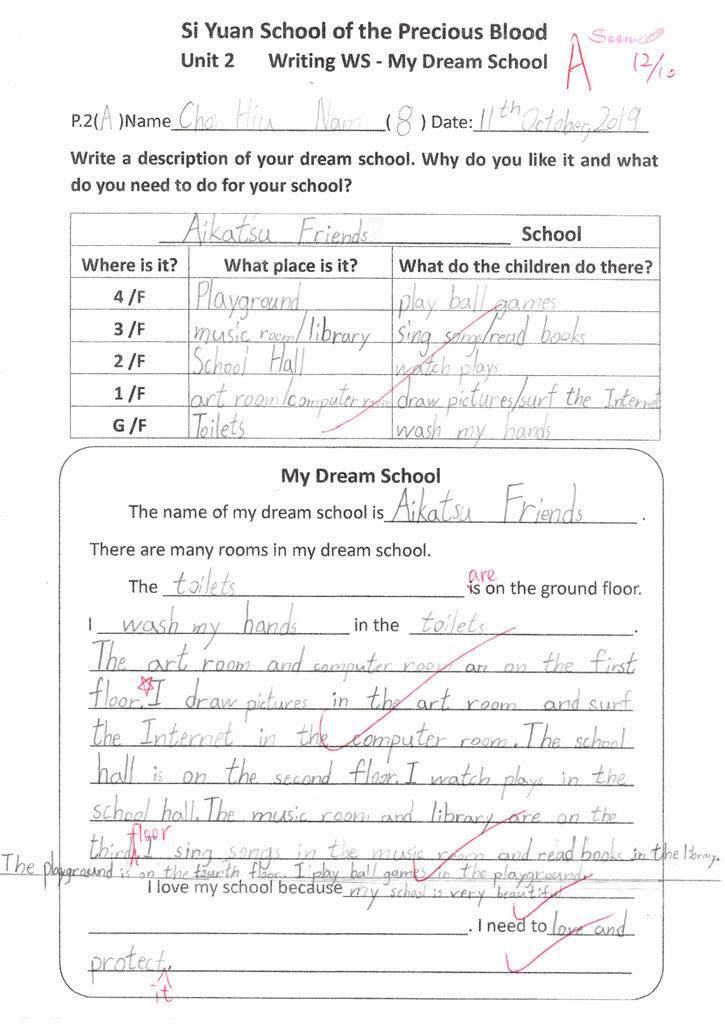 Si Yuan School of the Precious Blood
Unit 2 Writing WS - My Dream School
A
12/10
P.2(A)Name Choi Hiu Nam (8) Date: 11th October, 2019
Write a description of your dream school. Why do you like it and what
do you need to do for your school?
Aikatsu Friends School
Where is it? What place is it? What do the children do there?
4 /F Playground play ball games
3 /F music room/library sing songs/read books
2 /F School Hall watch plays
1 /F art room/computer room draw pictures/surf the Internet
G /F Toilets wash my hands
My Dream School
The name of my dream school is Aikatsu Friends .
There are many rooms in my dream school.
are
The toilets is on the ground floor.
I wash my hands in the toilets .
The art room and computer room are on the first
floor. I draw pictures in the art room and surf
the Internet in the computer room. The school
hall is on the second floor. I watch plays in the
school hall. The music room and library are on the
floor
third. I sing songs in the music room and read books in the library.
The playground is on the fourth floor. I play ball games in the playground.
I love my school because my school is very beautiful
. I need to love and
protect.
it